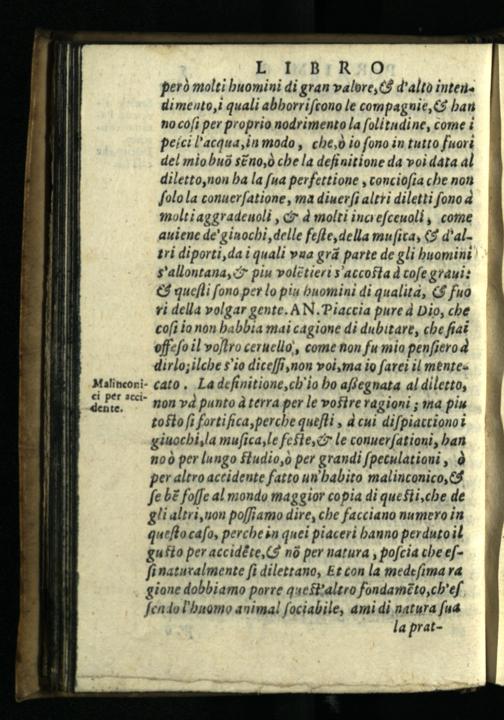 LIBRO
però molti huomini di gran valore, & d'alto inten-
dimento, i quali abhorriscono le compagnie, & han
no cosi per proprio nodrimento la solitudine, come i
pesci l'acqua, in modo, che, ò io sono in tutto fuori
del mio buō sēno, ò che la definitione da voi data al
diletto, non ha la sua perfettione, conciosia che non
solo la conuersatione, ma diuersi altri diletti sono à
molti aggradeuoli, & à molti increseeuoli, come
auiene de'giuochi, delle feste, della musica, & d'al-
tri diporti, da i quali vna grā parte de gli huomini
s'allontana, & piu volētieri s'accosta à cose graui:
& questi sono per lo piu huomini di qualità, & fuo
ri della volgar gente. AN. Piaccia pure à Dio, che
cosi io non habbia mai cagione di dubitare, che siai
offeso il vostro ceruello, come non fu mio pensiero à
dirlo; ilche s'io dicessi, non voi, ma io sarei il mente-
cato. La definitione, ch'io ho assegnata al diletto,
Malinconi-
ci per acci-
dente.
non và punto à terra per le vostre ragioni; ma piu
tosto si fortifica, perche questi, à cui dispiacciono i
giuochi, la musica, le feste, & le conuersationi, han
no ò per lungo studio, ò per grandi speculationi, ò
per altro accidente fatto un'habito malinconico, &
se bē fosse al mondo maggior copia di questi, che de
gli altri, non possiamo dire, che facciano numero in
questo caso, perche in quei piaceri hanno perduto il
gusto per accidēte, & nō per natura, poscia che es-
si naturalmente si dilettano, Et con la medesima ra
gione dobbiamo porre quest'altro fondamēto, ch'es
sendo l'huomo animal sociabile, ami di natura sua
la prat-